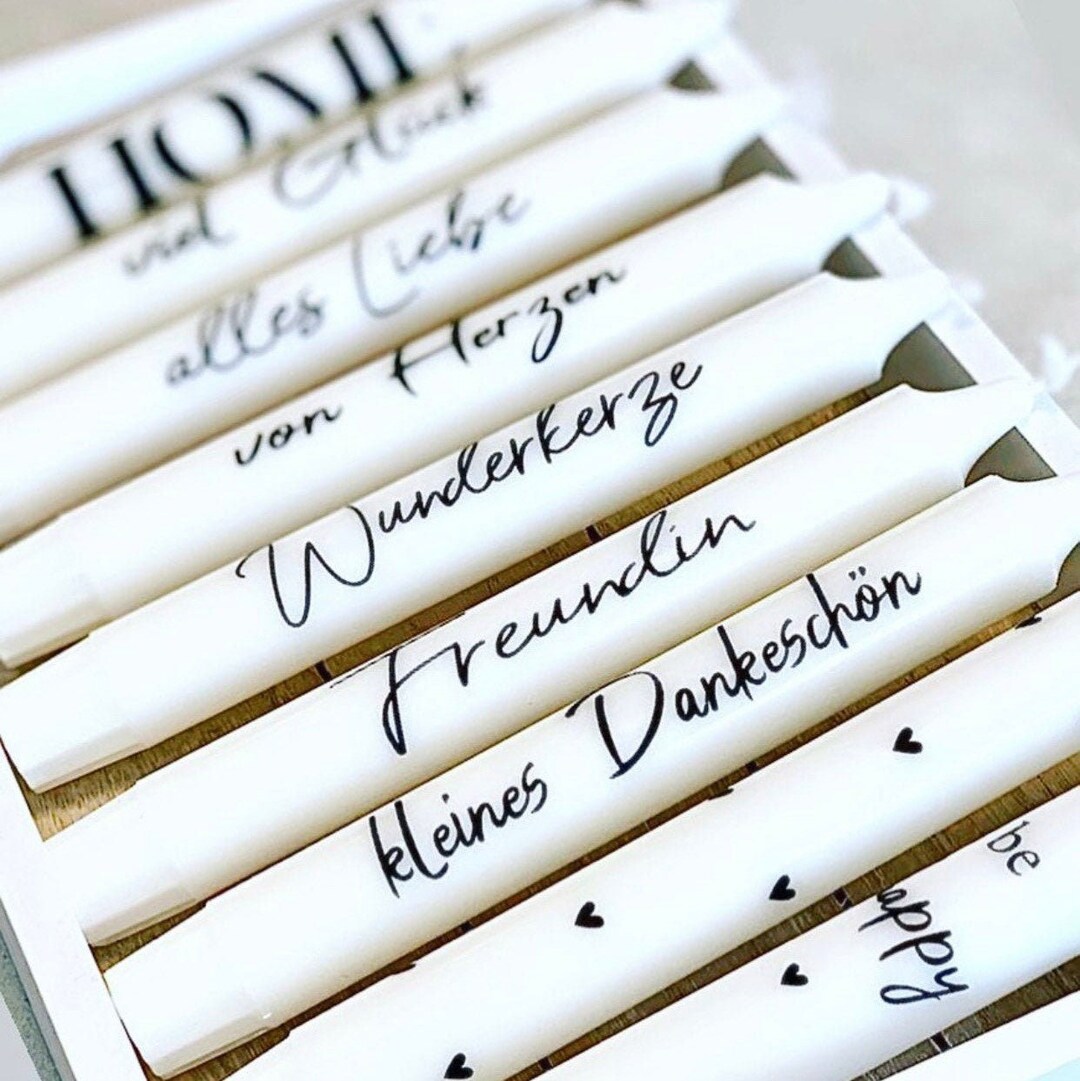 HOME
viel Glück
alles Liebe
von Herzen
Wunderkerze
Freundin
kleines Dankeschön
be
happy